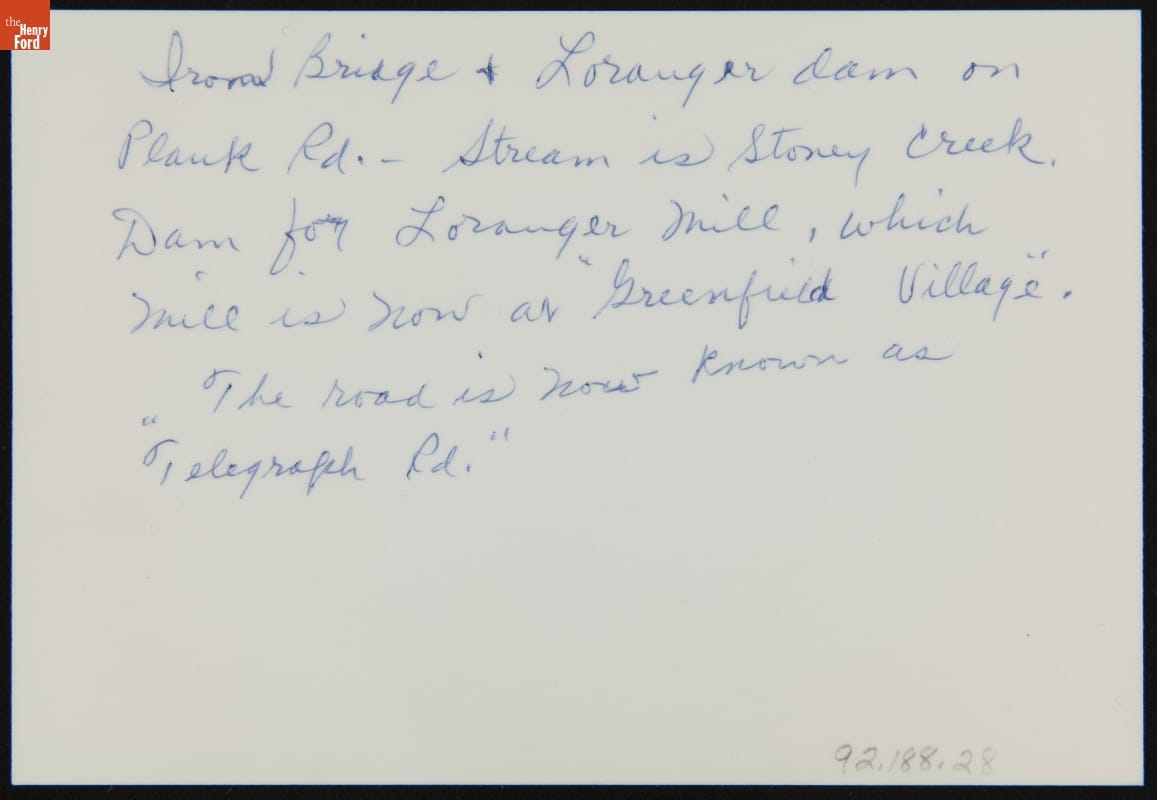 the
Henry
Ford
Iron Bridge & Loranger dam on
Plank Rd. - Stream is Stoney Creek.
Dam for Loranger Mill, which
mill is now at "Greenfield Village".
The road is now known as
"Telegraph Rd."
92.188.28